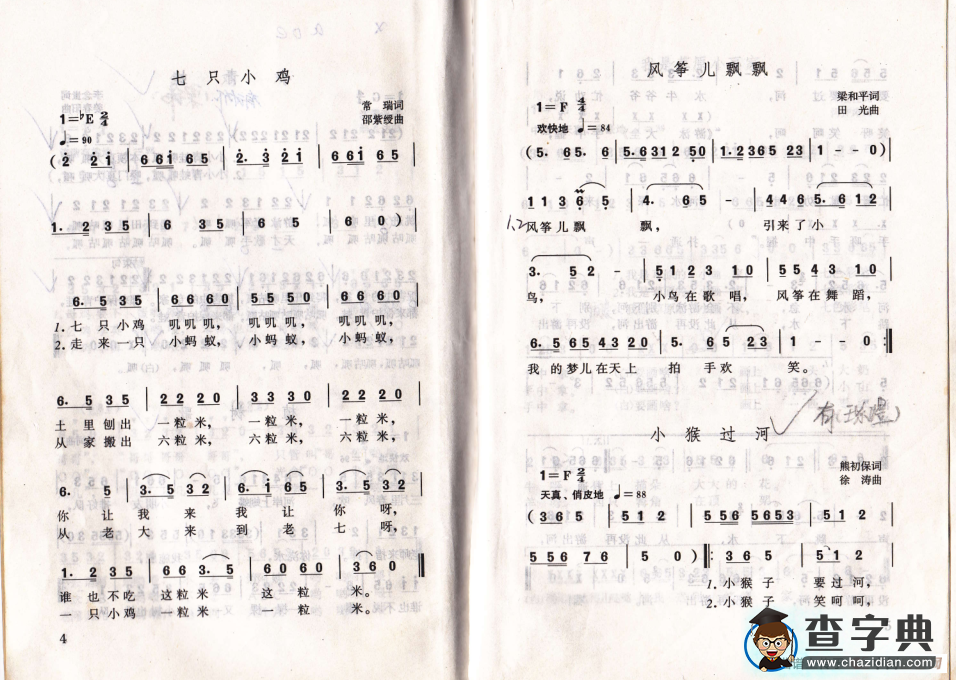 七只小鸡
常 瑞词
邵紫绶曲
1=♭E 2/4
♩=90
(2· 2 2 1 | 6 6 1 6 5 | 2. 3 2 1 | 6 1 6 5 |
1. 2 3 5 | 6 3 5 | 6 5 | 6 0) |
6. 5 3 5 | 6 6 6 0 | 5 5 5 0 | 6 6 6 0 |
1.七只小鸡 叽叽叽, 叽叽叽, 叽叽叽,
2.走来一只 小蚂蚁, 小蚂蚁, 小蚂蚁,
6. 5 3 5 | 2 2 2 0 | 3 3 3 0 | 2 2 2 0 |
土里刨出 一粒米, 一粒米, 一粒米,
从家搬出 六粒米, 六粒米, 六粒米,
6. 5 | 3. 5 3 2 | 6. 1 6 5 | 3. 5 3 2 |
你 让 我 来 我 让 你 呀,
从 老 大 来 到 老 七 呀,
1. 2 3 5 | 6 6 3. 5 | 6 0 6 0 | 3 6 0 ‖
谁也不吃 这粒米 这 粒 米。
一只小鸡 一粒米 一 粒 米。
4
风筝儿飘飘
梁和平词
田 光曲
1=F 4/4
欢快地 ♩=84
(5. 6 5. 6 | 5. 6 3 1 2 5 0 | 1. 2 3 6 5 2 3 | 1 - - 0) |
1 1 3 6 5 | 4. 6 5 - | 4 4 6 5. 6 1 2 |
1,2
风筝儿飘 飘, 引来了小
3. 5 2 - | 5 1 2 3 1 0 | 5 5 4 3 1 0 |
鸟, 小鸟在歌唱, 风筝在舞蹈,
6. 5 6 5 4 3 2 0 | 5. 6 5 2 3 | 1 - - 0 :‖
我的梦儿在天上 拍 手欢 笑。
小猴过河
熊初保词
徐 涛曲
1=F 2/4
天真、俏皮地 ♩=88
(3 6 5 | 5 1 2 | 5 5 6 5 6 5 3 | 5 1 2 |
5 5 6 7 6 | 5 0) ‖: 3 6 5 | 5 1 2 |
1.小猴子 要过河,
2.小猴子 笑呵呵,
查字典
www.chazidian.com